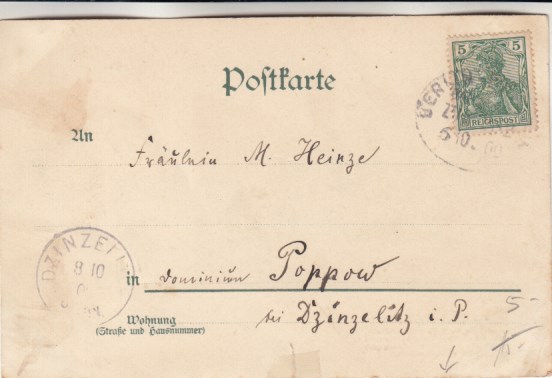 Postkarte
5 5
REICHSPOST
BERLIN
An
Fräulein M. Heinze
DZINZEL
8 10
in Dominium Poppow
Wohnung
(Straße und Hausnummer)
bei Dzinzelitz i. P.
5-